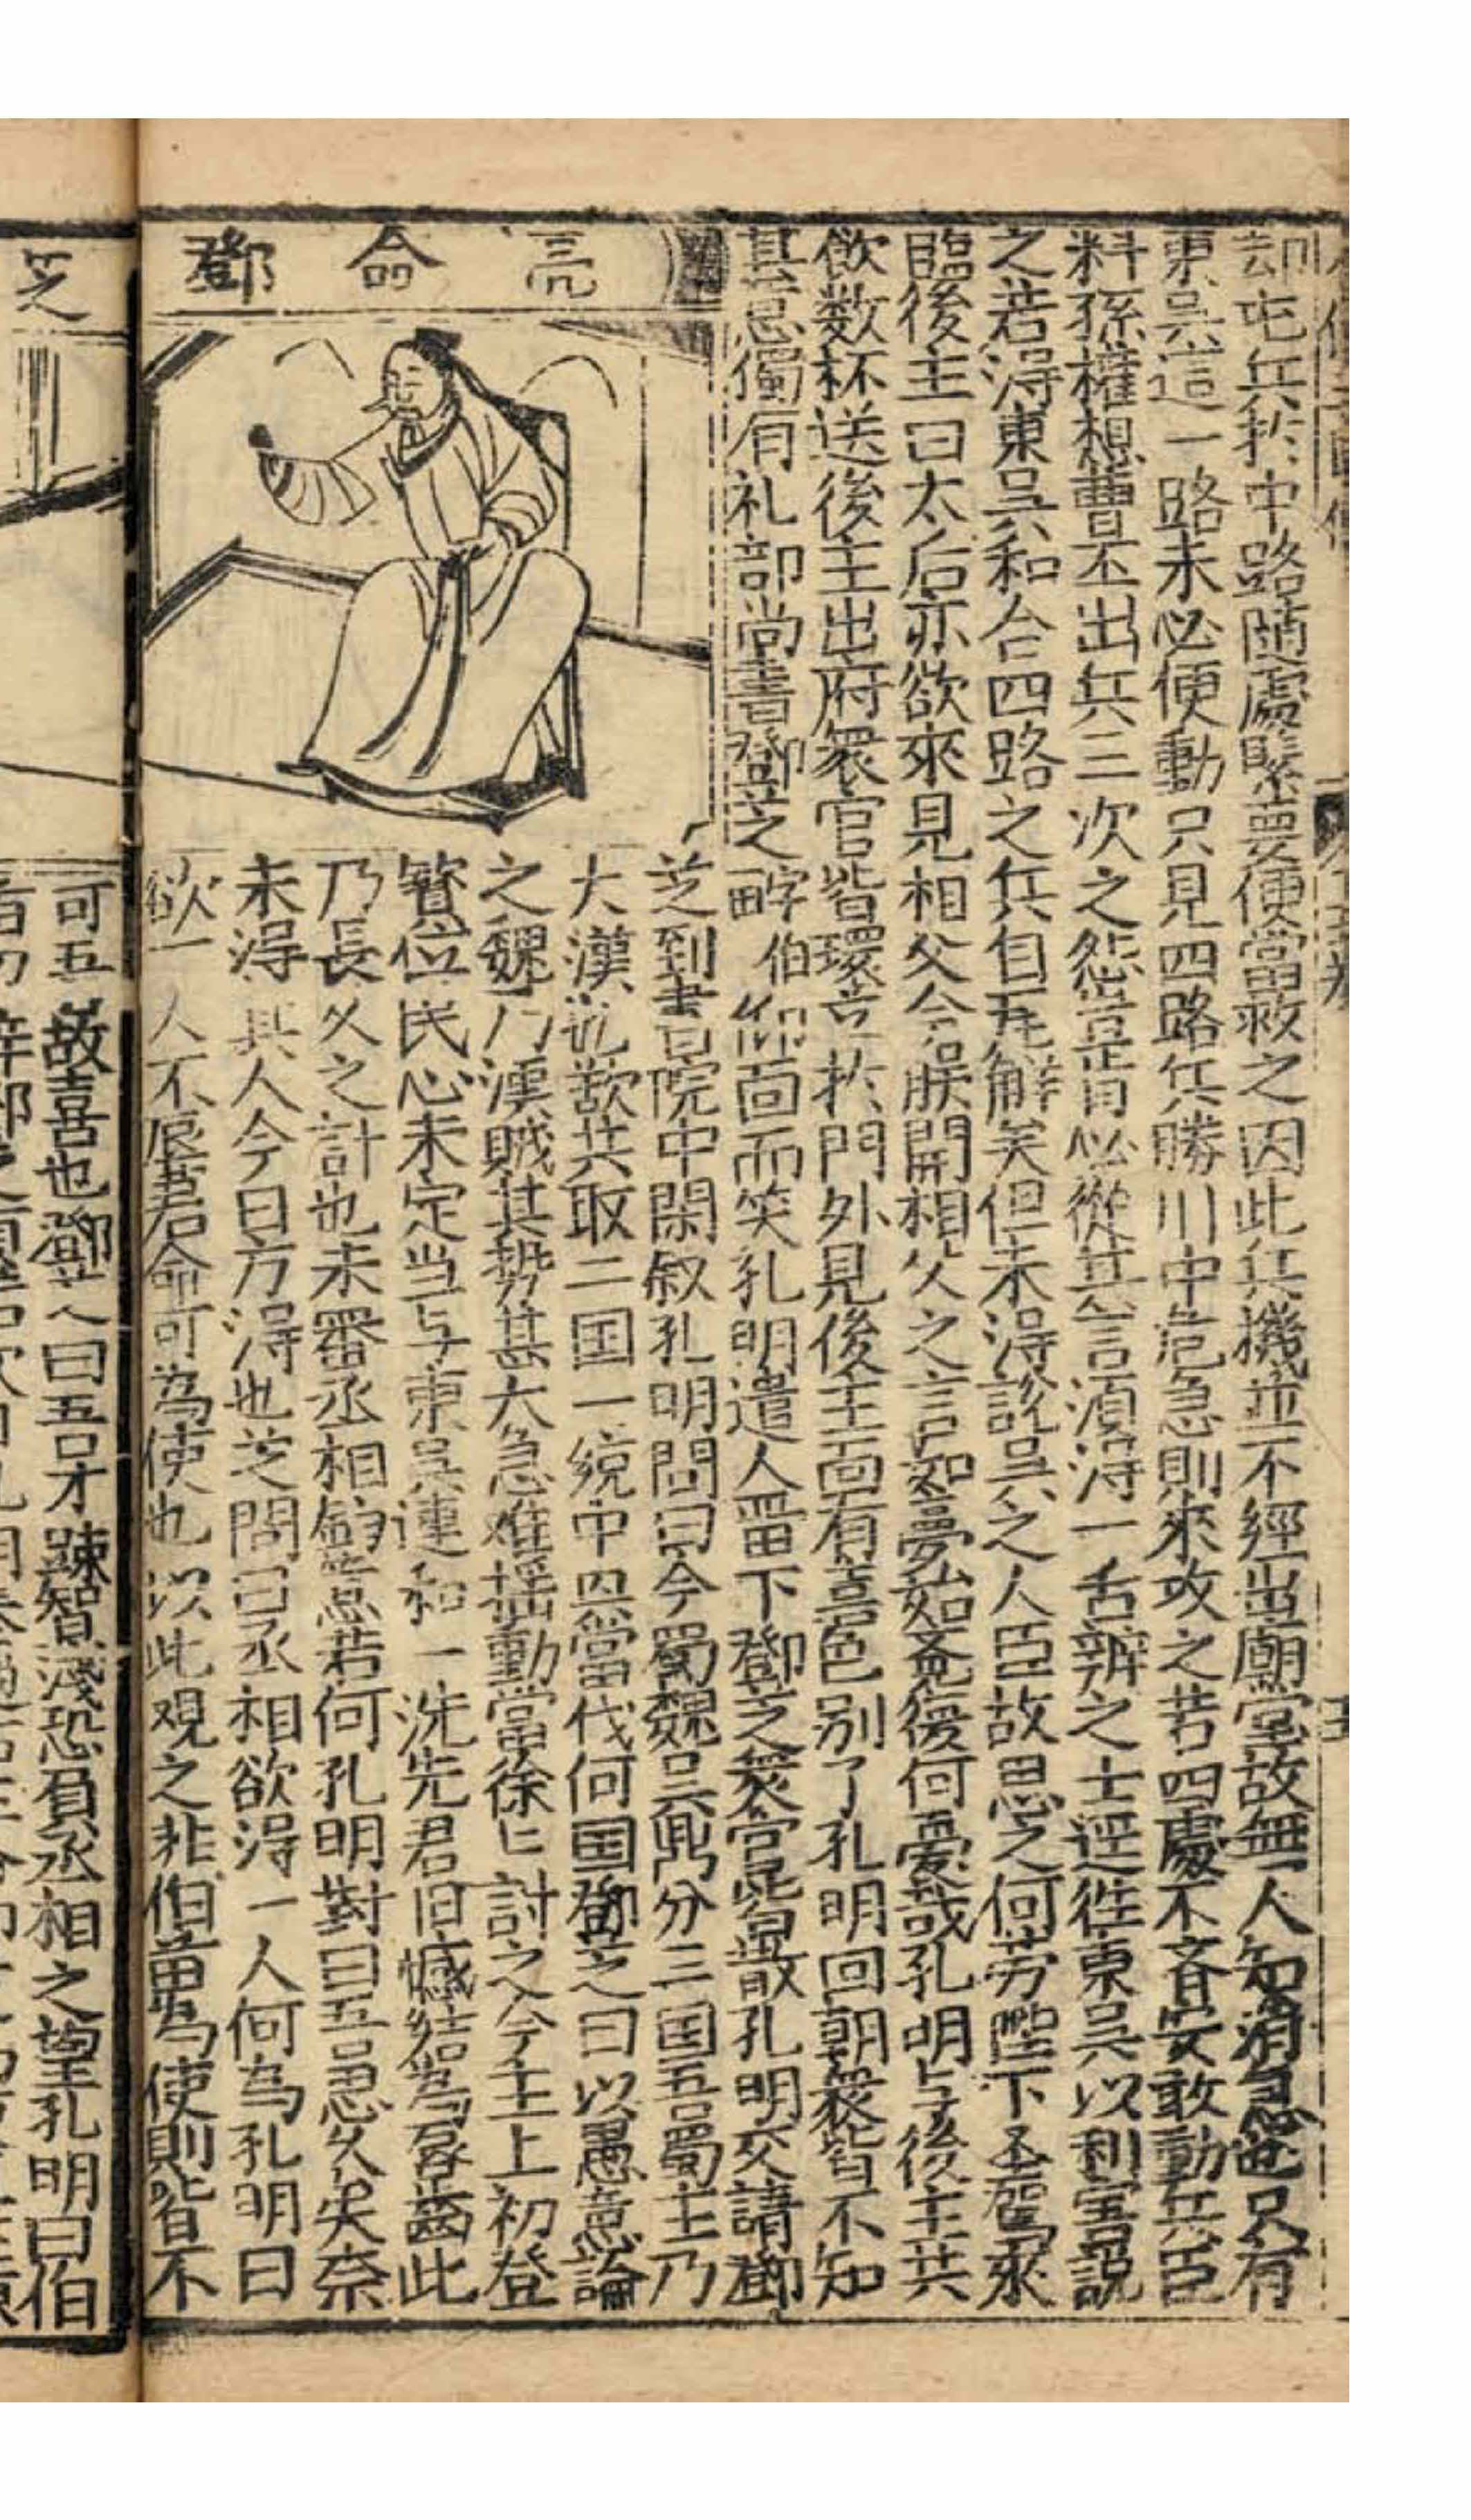 却屯兵於中路随處緊要便當救之因此兵機並不經出廟堂故無一人知消息也只有
東吳這一路未必便動只見四路兵勝川中危急則來攻之若四處不斉安敢動兵臣
料孫權想曹丕出兵三次之怨豈肯必從其言須淂一舌辨之士逕徃東吳以利害説
之若淂東吳和合四路之兵自瓦觧矣但未淂說吳之人臣故思之何劳陛下圣駕來
臨後主曰太后亦欲來見相父今朕開相父之言如夢始竟復何憂哉孔明与後主共
飲数杯送後主出府衆官皆環立於門外見後主面有喜色别了孔明回朝衆皆不知
其意獨有礼部尚書鄧芝字伯 仰面而笑孔明遣人畱下鄧芝衆官皆散孔明交請鄧
亮命鄧
芝到書院中閑叙孔明問曰今蜀魏吳鼎分三国吾蜀主乃
大漢 歎共取二国一統中 當代何国鄧芝曰以愚意論
之魏乃漢賊其勢甚大急难揺動當徐匕討之今主上初登
寳位民心未定当与東吳連和一洗先君旧憾結為唇齒此
乃長久之計也未審丞相鈞意若何孔明對曰吾思久矣奈
未淂其人今日方淂也芝問曰丞相欲淂一人何為孔明曰
欲一人不辱君命可為使也以此观之非伯苗為使則皆不
芝
可吾故喜也鄧芝曰吾才踈智淺恐負丞相之望孔明曰伯